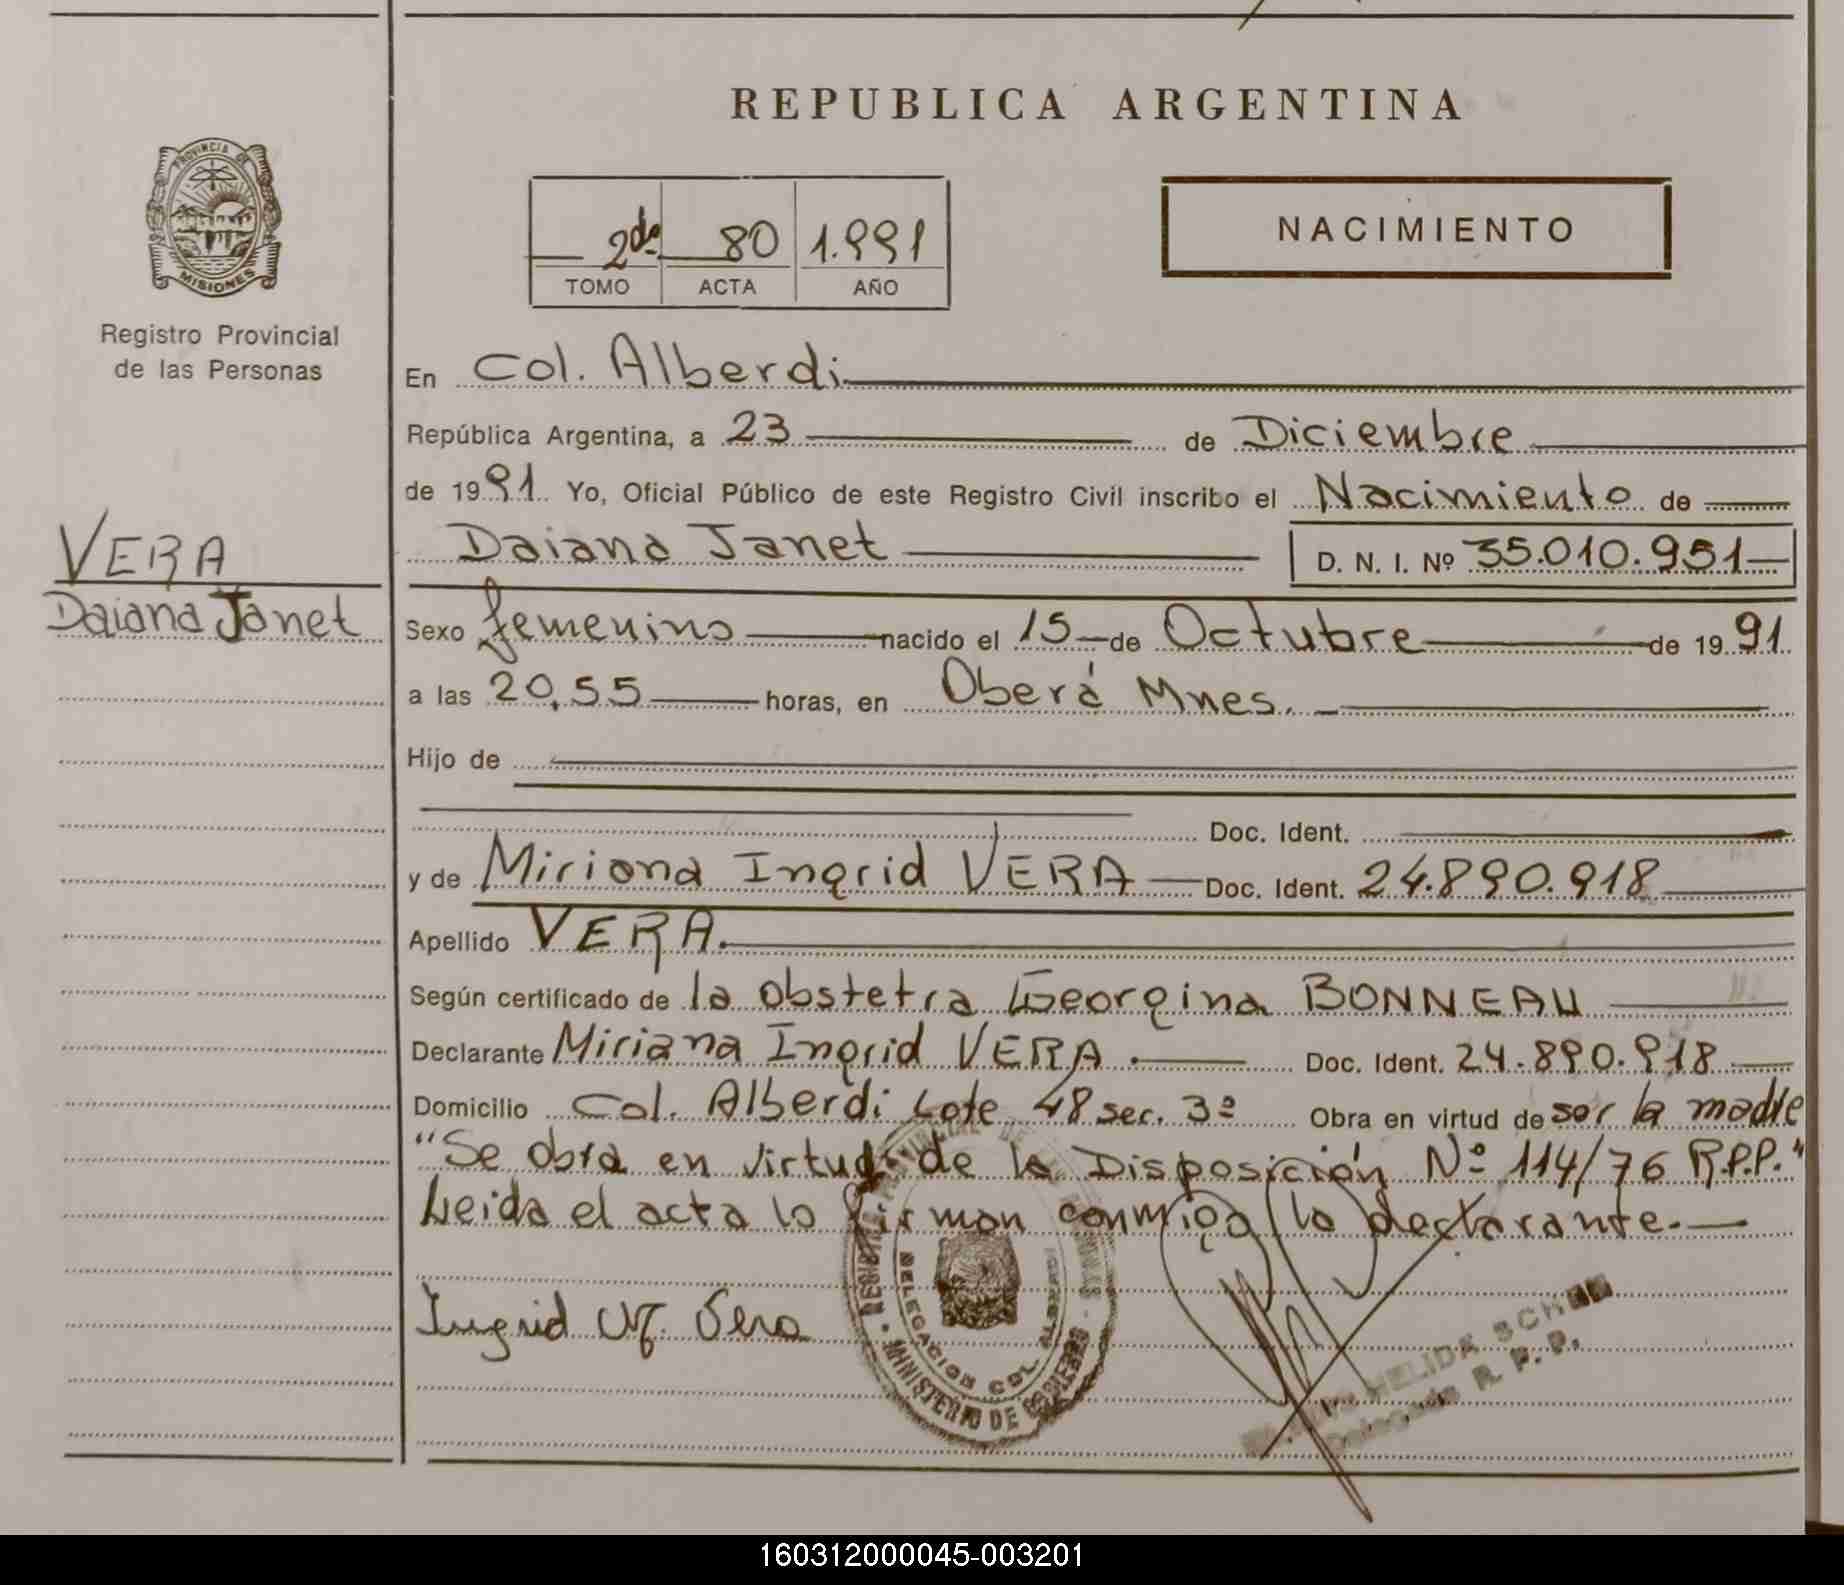 REPUBLICA ARGENTINA
PROVINCIA DE
MISIONES
Registro Provincial
de las Personas
2do 80 1.991
TOMO ACTA AÑO
NACIMIENTO
VERA
Daiana Janet
En Col. Alberdi
República Argentina, a 23 de Diciembre
de 1991 Yo, Oficial Público de este Registro Civil inscribo el Nacimiento de
Daiana Janet D. N. I. Nº 35.010.951
Sexo femenino nacido el 15 de Octubre de 1991
a las 20,55 horas, en Oberá Mnes.
Hijo de
Doc. Ident.
y de Miriana Ingrid VERA Doc. Ident. 24.890.918
Apellido VERA.
Según certificado de la obstetra Georgina BONNEAU
Declarante Miriana Ingrid VERA. Doc. Ident. 24.890.918
Domicilio Col. Alberdi Lote 48 sec. 3º Obra en virtud de ser la madre
"Se obra en virtud de la Disposición Nº 114/76 R.P.P."
Leida el acta la firman conmigo la declarante.
Ingrid M. Vera
DELEGACION COL. ALBERDI
MINISTERIO DE GOBIERNO
NELIDA
Delegada R. P. P.
160312000045-003201